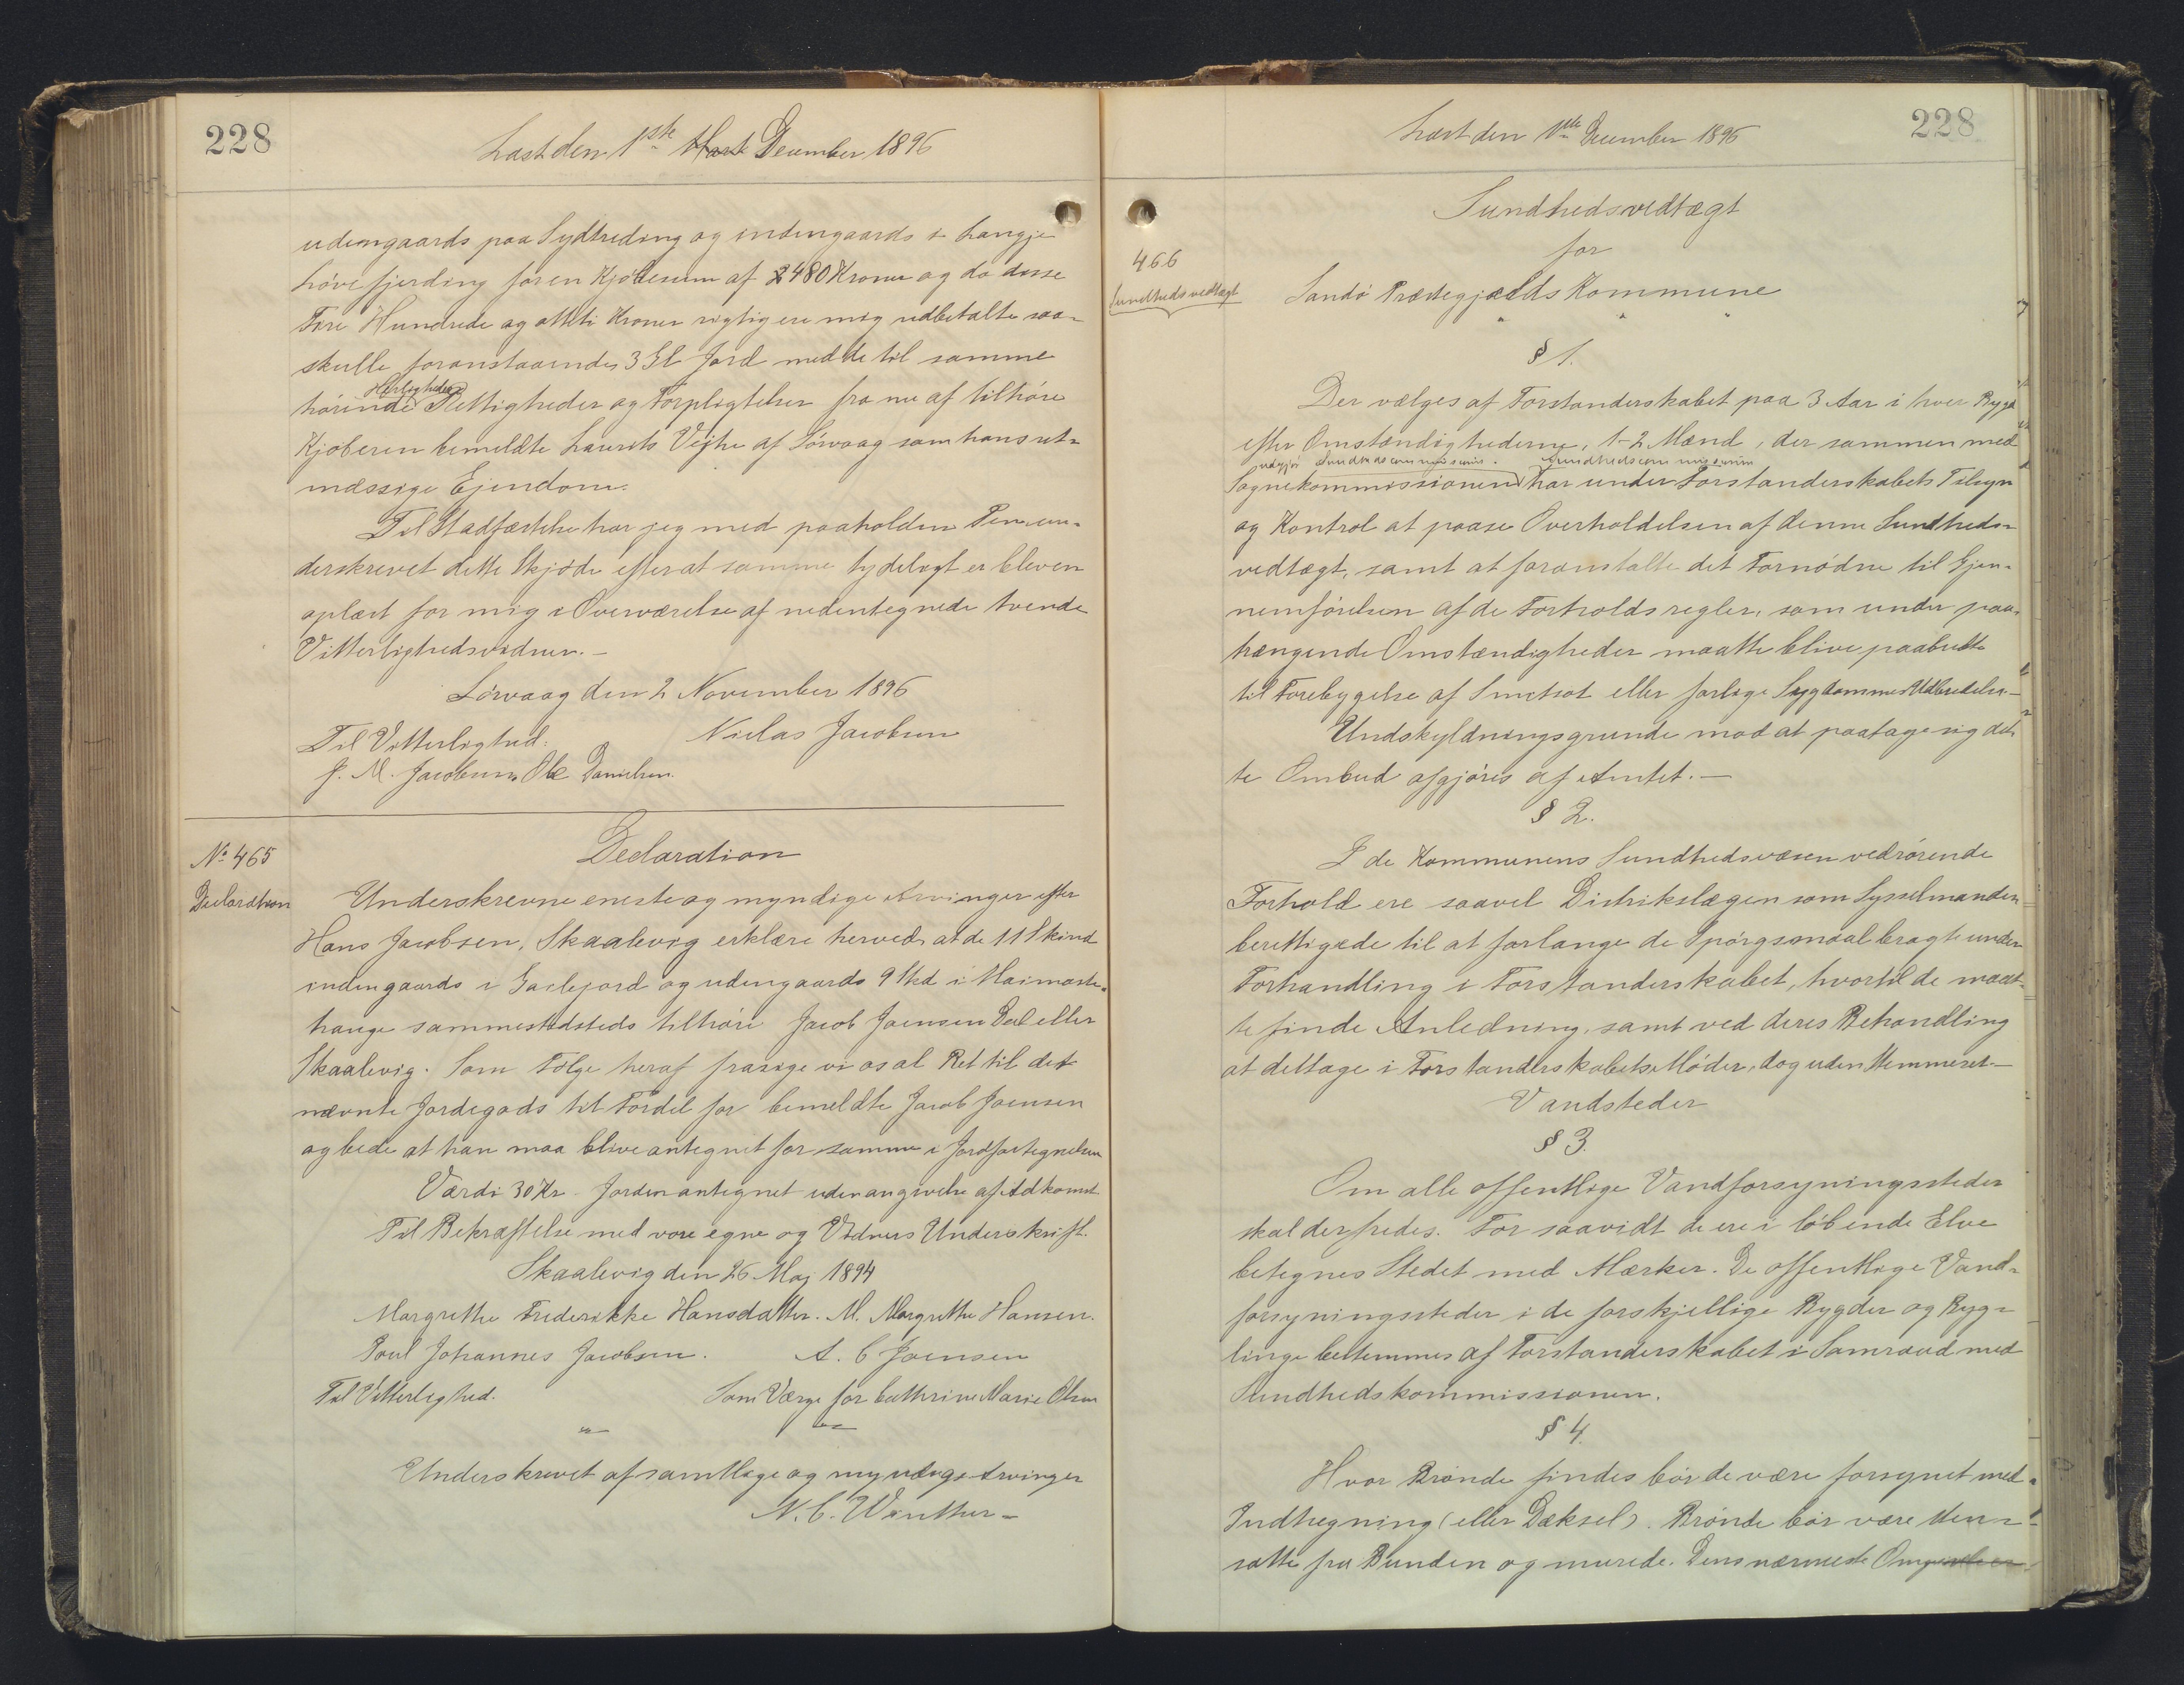 228
Læst den 1ste December 1896
udengaards paa Sydtreding og indengaards i Langje
høvefjerding for en Kjøbesum af 2480 Kroner og da disse
Fire Hundrede og otteti Kroner rigtig ere mig udbetalte saa-
skulle foranstaaende 3 Gl Jord med de til samme
Herligheder
hørende Rettigheder og Forpligtelser fra nu af tilhøre
Kjøberen bemeldte Laurits Vejhe af Sørvaag som hans ret-
mæssige Ejendom.
Til Stadfæstelse har jeg med paaholden Pen un-
derskrevet dette Skjøde efter at samme tydeligt er bleven
oplæst for mig i Overværelse af nedentegnede tvende
Vitterlighedsvidner.-
Sørvaag den 2 November 1896
Til Vitterlighed: Niclas Jacobsen
J. M. Jacobsen Ole Danielsen.
No 465
Declaration
Declaration
Underskrevne eneste og myndige Arvinger efter
Hans Jacobsen, Skaalevig erklære herved, at de 11 Skind
indengaards i Gailejord og udengaards 9 Skd i Haimaste-
hange sammestedsteds tilhøre Jacob Joensen Dal eller
Skaalevig. Som Følge heraf frasige vi os al Ret til det
nævnte Jordegods til Fordel for bemeldte Jacob Joensen
og bede at han maa blive antegnet for samme i Jordfortegnelsen
Værdi 30 Kr. Jorden antegnet uden angivelse af Adkomst
Til Bekræftelse med vore egne og Vidners Underskrift.
Skaalevig den 26 Maj 1894
Margrethe Frederikke Hansdatter. M. Margrethe Hansen.
Poul Johannes Jacobsen. A. C Joensen
Til Vitterlighed. Som Værge for Cathrine Marie Olsen
Underskrevet af samtlige og myndige Arvinger
N. C. Winther-
Læst den 1ste December 1896
228
Sundhedsvedtægt
for
466
Sundhedsvedtægt
Sandø Præstegjælds Kommune
§ 1.
Der vælges af Forstanderskabet paa 3 Aar i hver Bygd
efter Omstændighederne, 1-2 Mænd, der sammen med
udgjør Sundhedscommissionen. Sundhedscommissionen
Sognekommissionen har under Forstanderskabets Tilsyn
og Kontrol at paase Overholdelsen af denne Sundheds-
vedtægt, samt at foranstalte det Fornødne til Gjen-
nemførelsen af de Forholdsregler, som under paa-
trængende Omstændigheder maatte blive paabudte
til Forebygelse af Smetsot eller farlige Sygdommes Udbredelse-
Undskyldningsgrunde mod at paatage sig det-
te Ombud afgjøres af Amtet.-
§ 2.
I de Kommunens Sundhedsvæsen vedrørende
Forhold ere saavel Distrikslægen som Sysselmanden
berettigede til at forlange de Spørgsmaal bragte under
Forhandling i Forstanderskabet, hvortil de maat-
te finde Anledning, samt ved deres Behandling
at deltage i Forstanderskabets Møder, dog uden Stemmeret-
Vandsteder
§ 3.
Om alle offentlige Vandforsyningssteder
skal der fredes. For saavidt de ere i løbende Elve
betegnes Stedet med Mærker. De offentlige Vand-
forsyningssteder i de forskjellige Bygder og Byg-
linge bestemmes af Forstanderskabet i Samraad med
Sundhedskommissionen.
§ 4.
Hvor Brønde findes bør de være forsynet med
Indhegning (eller Dæksel). Brønde bør være sten-
satte fra Bunden og murede. Dens nærmeste